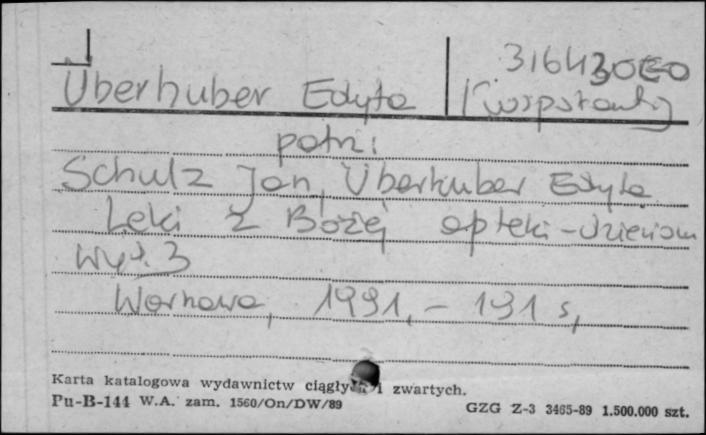 Überhuber Edyta
patrz:
Schulz Jan, Überhuber Edyta
Leki z Bożej apteki - dzieciom
Wyd. 3
Warszawa, 1991, - 191 s,
Karta katalogowa wydawnictw ciągłych i zwartych.
Pu-B-144 W.A. zam. 1560/On/DW/89
GZG Z-3 3465-89 1.500.000 szt.